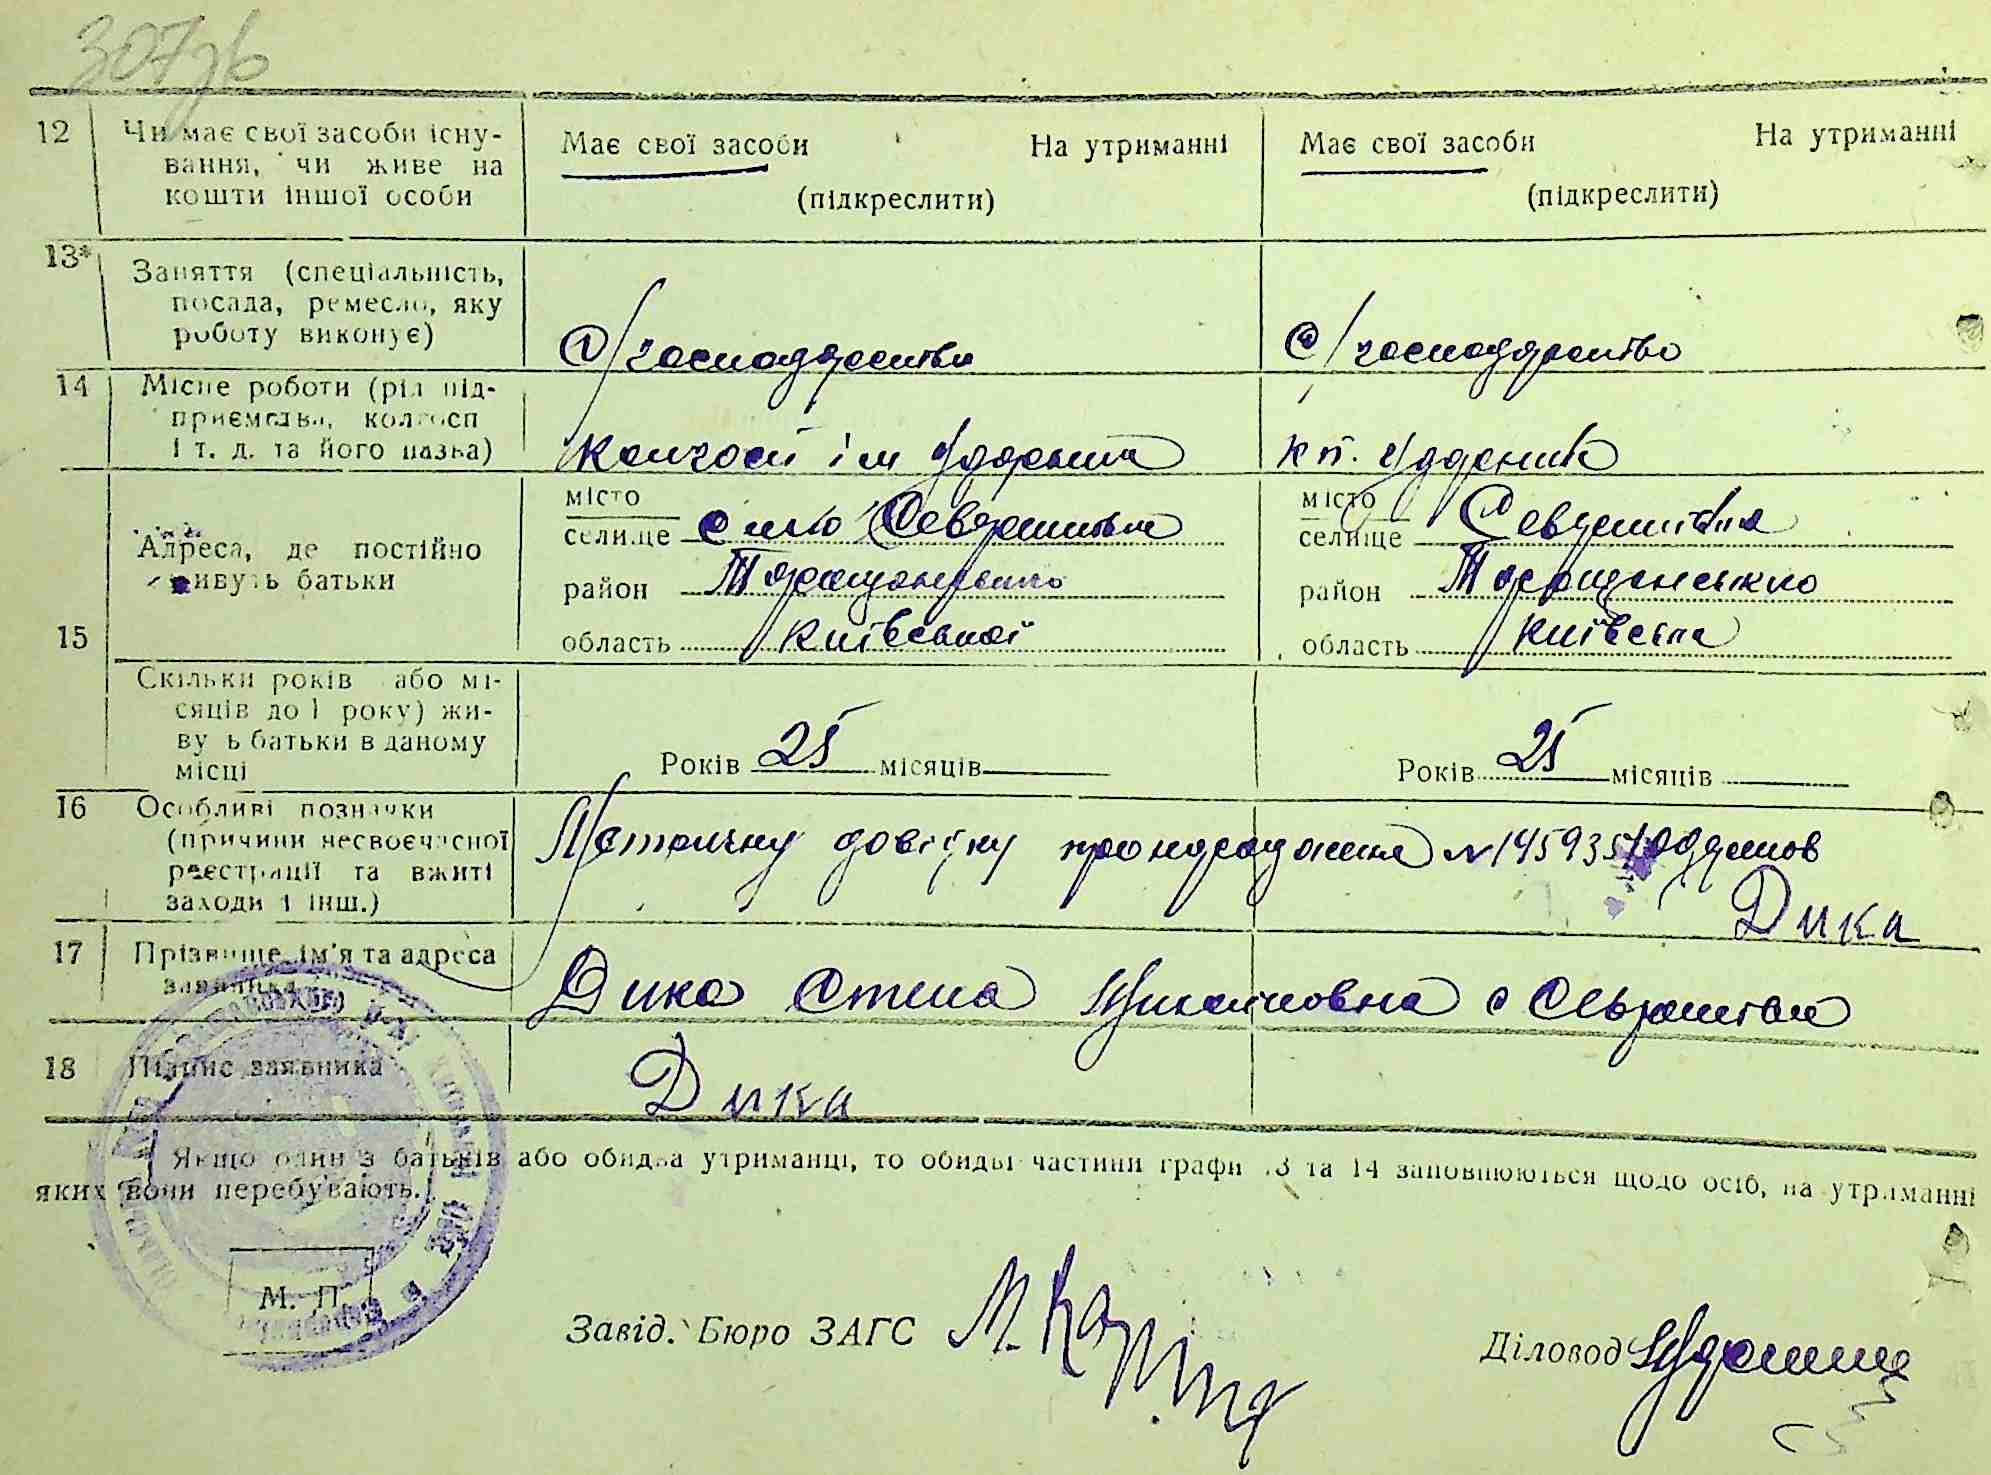 307зв
12 Чи має свої засоби існу-
вання, чи живе на
кошти іншої особи
Має свої засоби На утриманні
(підкреслити)
Має свої засоби На утриманні
(підкреслити)
13* Заняття (спеціальність,
посада, ремесло, яку
роботу виконує)
С/господарство
С/господарство
14 Місце роботи (рід під-
приємства, колгосп
і т. д. та його назва)
Колгосп ім Ударника
кп. Ударник
15 Адреса, де постійно
живуть батьки
місто
селище село
район Таращанського
область Київської
місто
селище
район Таращанського
область Київська
Скільки років або мі-
сяців до 1 року) жи-
вуть батьки в даному
місці
Років 25 місяців
Років 25 місяців
16 Особливі позначки
(причини несвоєчасної
реєстрації та вжиті
заходи і інш.)
довідку про народження № 145935
Дика
17 Прізвище, ім'я та адреса
заявника
Дика с
18 Підпис заявника
Дика
Якщо один з батьків або обидва утриманці, то обидві частини графи 13 та 14 заповнюються щодо осіб, на утриманні
яких вони перебувають.
М. П.
Завід. Бюро ЗАГС
Діловод